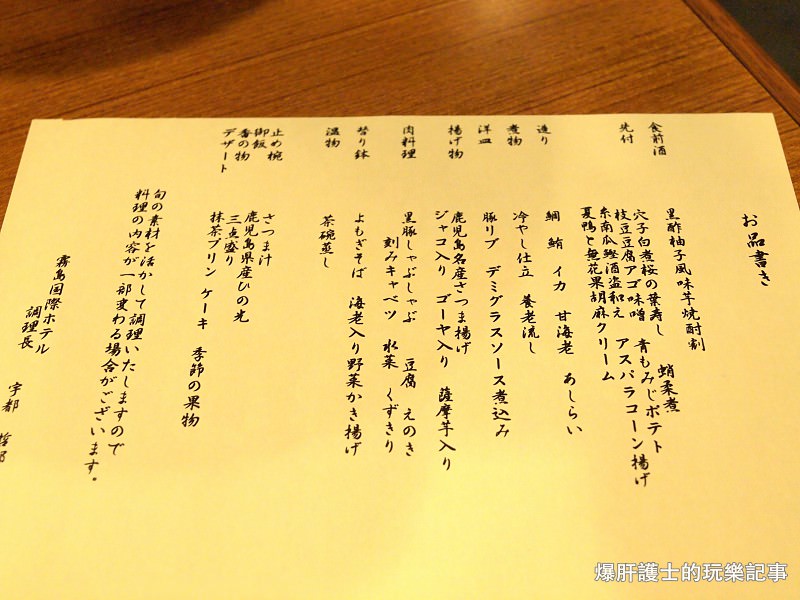 お品書き
食前酒　黒酢柚子風味芋焼酎割
先付　穴子白煮桜の葉寿し　蛸柔煮
枝豆豆腐アゴ味噌　青もみじポテト
糸南瓜鰹酒盗和え　アスパラコーン揚げ
夏鴨と無花果胡麻クリーム
造り　鯛　鮪　イカ　甘海老　あしらい
煮物　冷やし仕立　養老流し
洋皿　豚リブ　デミグラスソース煮込み
揚げ物　鹿児島名産さつま揚げ
ジャコ入り　ゴーヤ入り　薩摩芋入り
肉料理　黒豚しゃぶしゃぶ　豆腐　えのき
刻みキャベツ　水菜　くずきり
替り鉢　よもぎそば　海老入り野菜かき揚げ
温物　茶碗蒸し
止め椀　さつま汁
御飯　鹿児島県産ひの光
香の物　三点盛り
デザート　抹茶プリン　ケーキ　季節の果物
旬の素材を活かして調理いたしますので
料理の内容が一部変わる場合がございます。
霧島国際ホテル
調理長
宇都
爆肝護士的玩樂記事